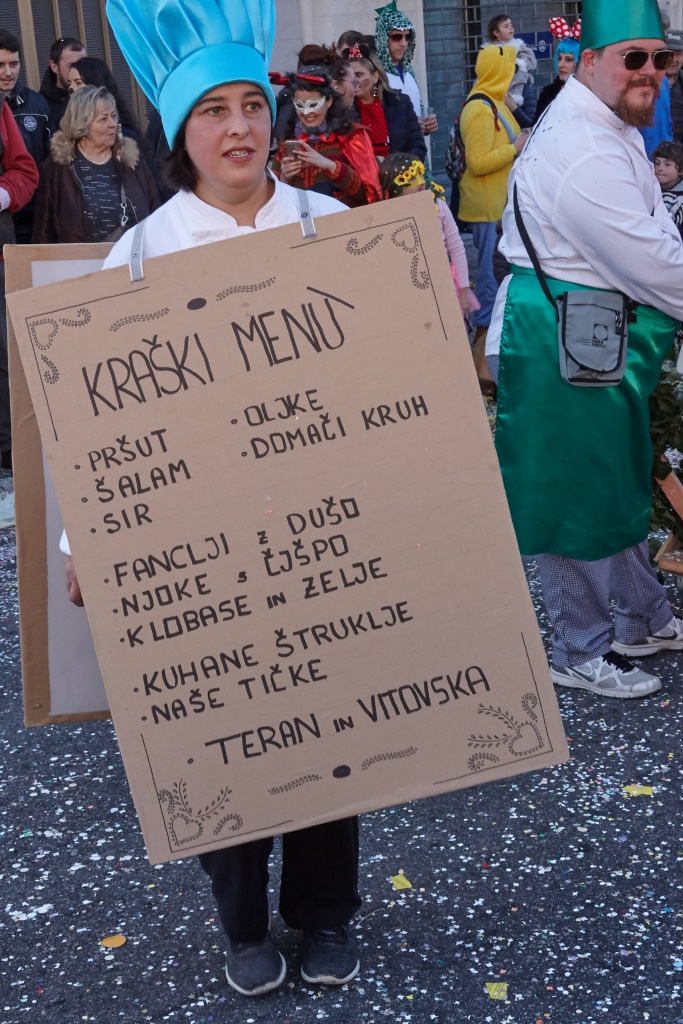 KRAŠKI MENÙ
· PRŠUT
· ŠALAM
· SIR
· OLJKE
· DOMAČI KRUH
· FANCLJI z DUŠO
· NJOKE s ČJŠPO
· KLOBASE in ZELJE
· KUHANE ŠTRUKLJE
· NAŠE TIČKE
· TERAN in VITOVSKA